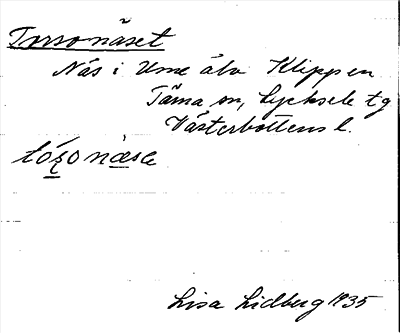 Tursonäset
Näs i Ume älv Klippen
Tärna sn, Lycksele tg
Västerbottens l.
Lisa Lidberg 1935